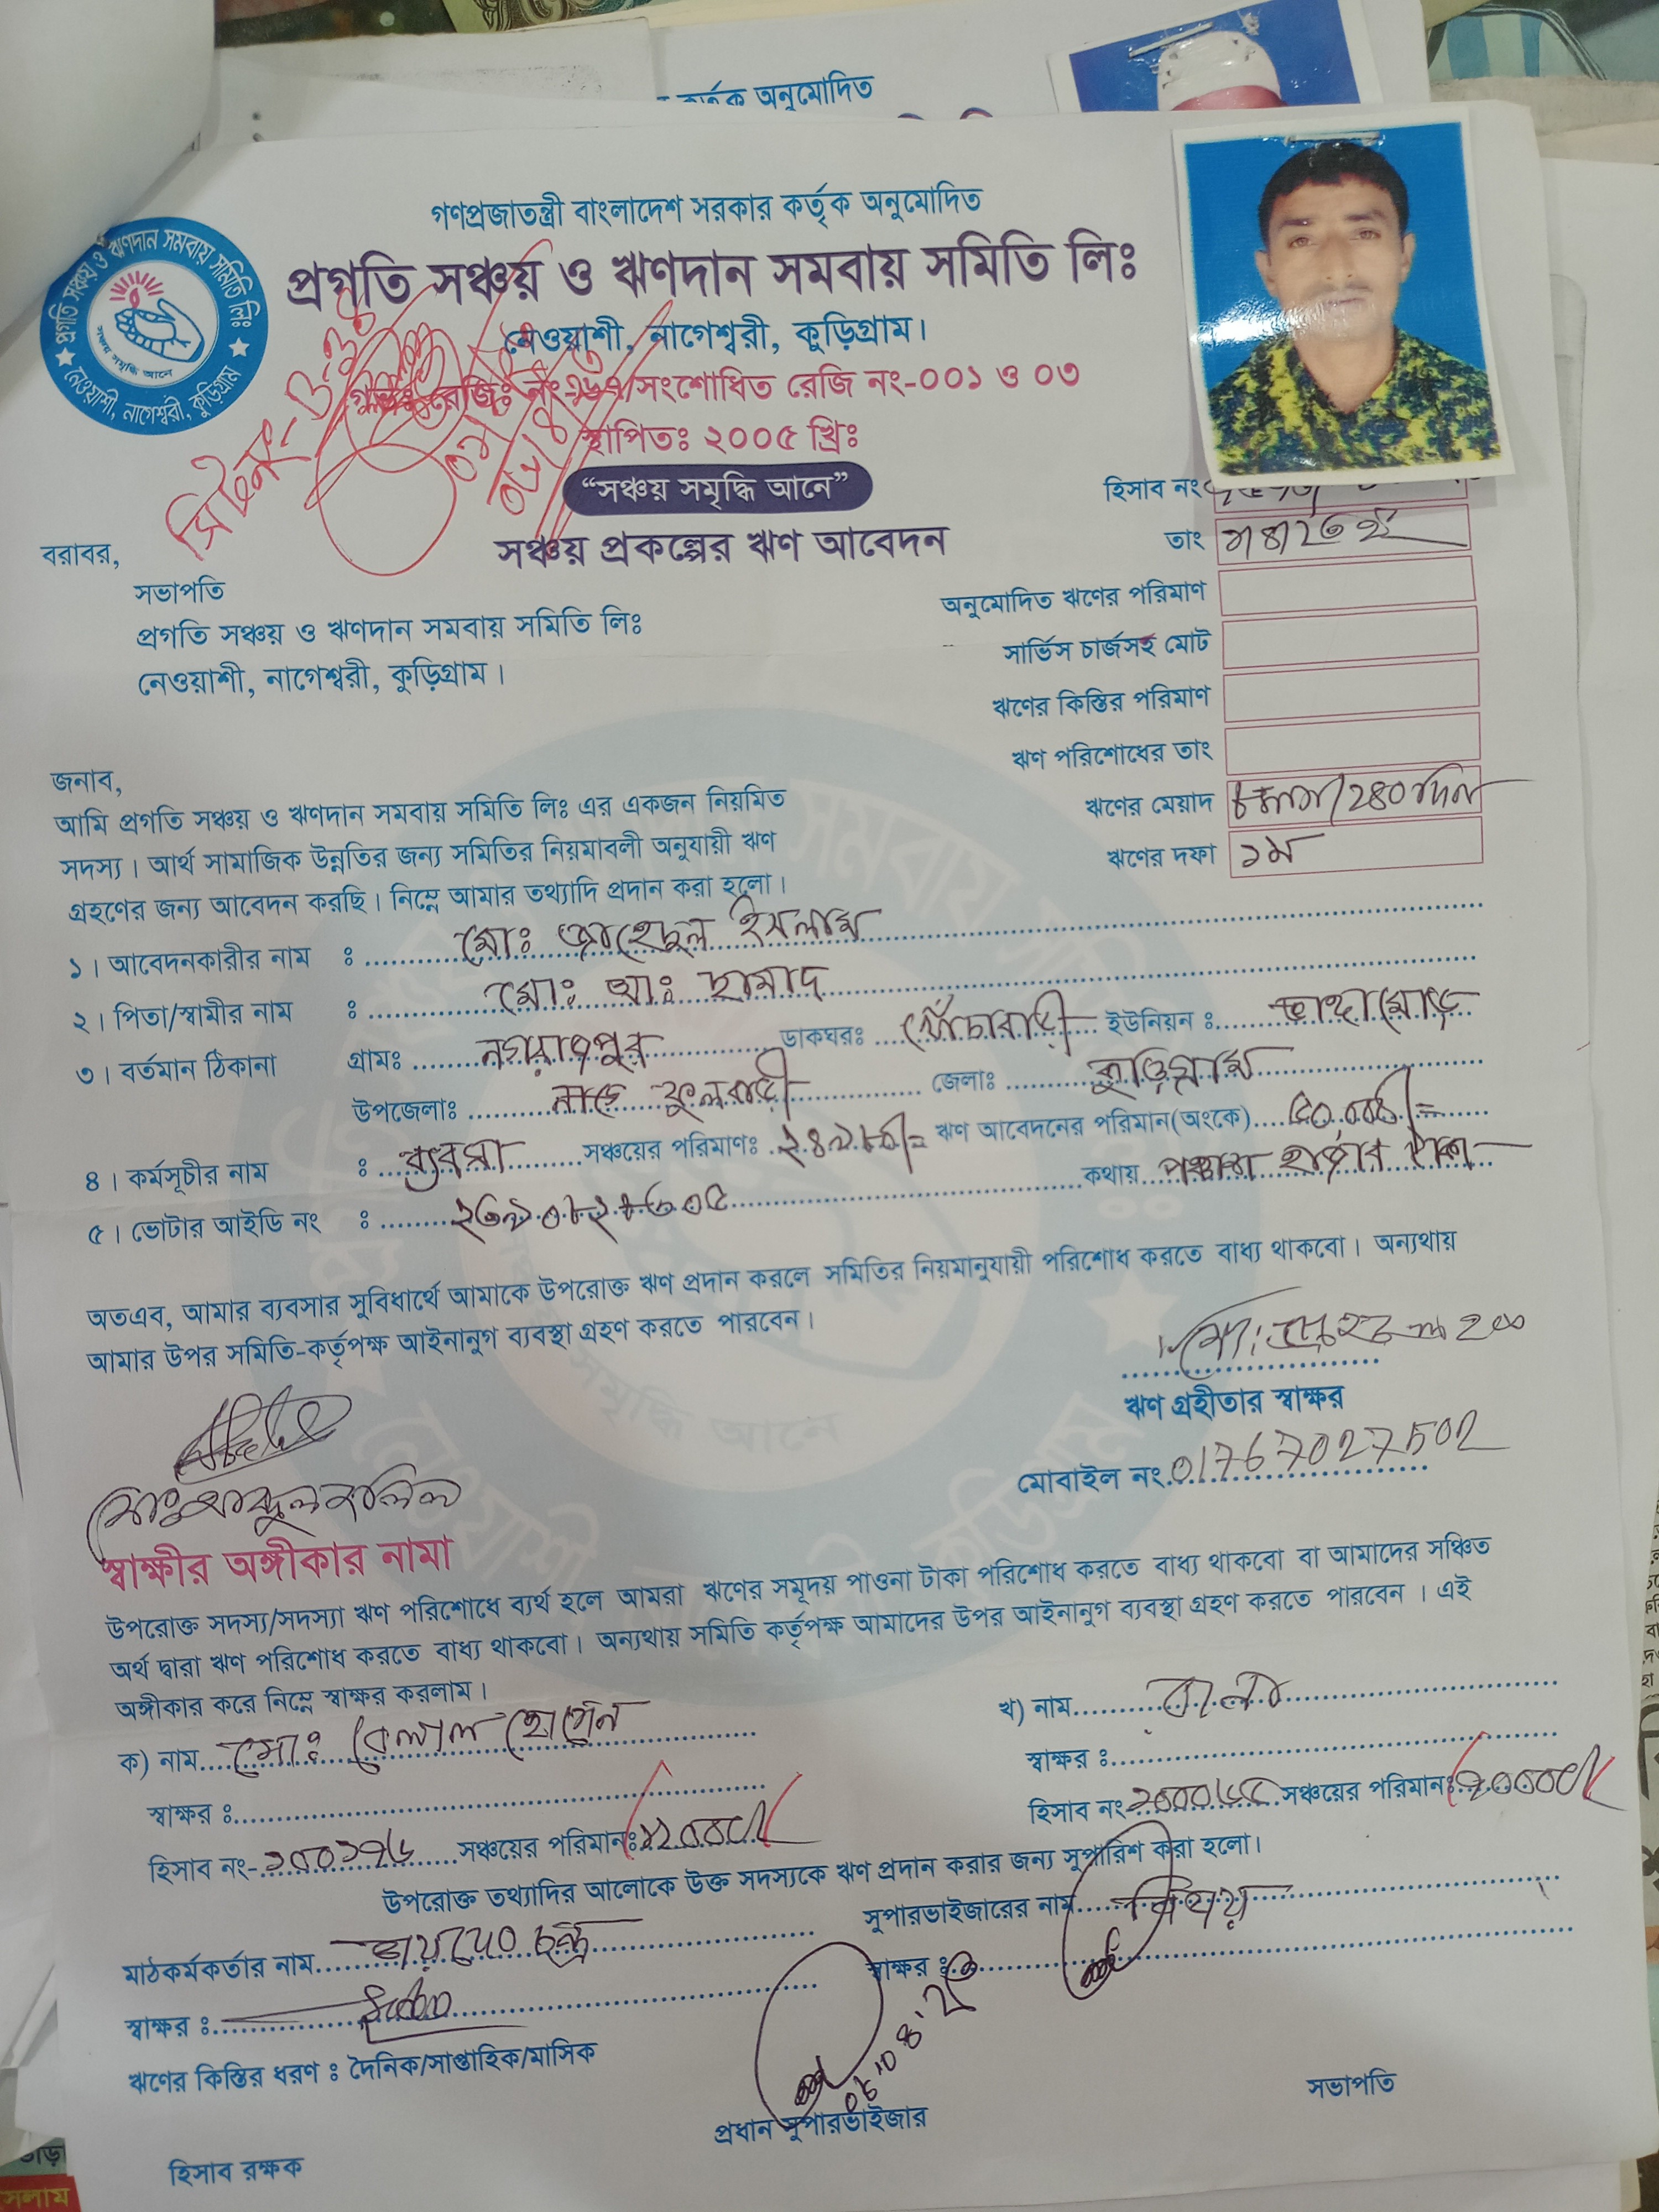 কর্তৃক অনুমোদিত
গণপ্রজাতন্ত্রী বাংলাদেশ সরকার কর্তৃক অনুমোদিত
প্রগতি সঞ্চয় ও ঋণদান সমবায় সমিতি লিঃ
নেওয়াশী, নাগেশ্বরী, কুড়িগ্রাম।
রেজিঃ নং- সংশোধিত রেজি নং-০০১ ও ০৩
স্থাপিতঃ ২০০৫ খ্রিঃ
“সঞ্চয় সমৃদ্ধি আনে”
সঞ্চয় প্রকল্পের ঋণ আবেদন
প্রগতি সঞ্চয় ও ঋণদান সমবায় সমিতি লিঃ
সঞ্চয় সমৃদ্ধি আনে
নেওয়াশী, নাগেশ্বরী, কুড়িগ্রাম
হিসাব নং
তাং
বরাবর,
সভাপতি
প্রগতি সঞ্চয় ও ঋণদান সমবায় সমিতি লিঃ
নেওয়াশী, নাগেশ্বরী, কুড়িগ্রাম।
অনুমোদিত ঋণের পরিমাণ
সার্ভিস চার্জসহ মোট
ঋণের কিস্তির পরিমাণ
ঋণ পরিশোধের তাং
ঋণের মেয়াদ ৮ মাস/240 দিন
ঋণের দফা ১ম
জনাব,
আমি প্রগতি সঞ্চয় ও ঋণদান সমবায় সমিতি লিঃ এর একজন নিয়মিত
সদস্য। আর্থ সামাজিক উন্নতির জন্য সমিতির নিয়মাবলী অনুযায়ী ঋণ
গ্রহণের জন্য আবেদন করছি। নিম্নে আমার তথ্যাদি প্রদান করা হলো।
১। আবেদনকারীর নাম : মোঃ জাহেদুল ইসলাম
২। পিতা/স্বামীর নাম : মোঃ আঃ ছামাদ
৩। বর্তমান ঠিকানা গ্রামঃ নগরাজপুর ডাকঘরঃ ইউনিয়ন : ভাঙ্গামোড়
উপজেলাঃ ফুলবাড়ী জেলাঃ কুড়িগ্রাম
৪। কর্মসূচীর নাম : ব্যবসা সঞ্চয়ের পরিমাণঃ ২৪৯৮০/= ঋণ আবেদনের পরিমান(অংকে) ৫০,০০০/=
কথায় পঞ্চাশ হাজার টাকা
৫। ভোটার আইডি নং :
অতএব, আমার ব্যবসার সুবিধার্থে আমাকে উপরোক্ত ঋণ প্রদান করলে সমিতির নিয়মানুযায়ী পরিশোধ করতে বাধ্য থাকবো। অন্যথায়
আমার উপর সমিতি-কর্তৃপক্ষ আইনানুগ ব্যবস্থা গ্রহণ করতে পারবেন।
ঋণ গ্রহীতার স্বাক্ষর
মোবাইল নং 01767027502
মোঃ আব্দুল হালিম
স্বাক্ষীর অঙ্গীকার নামা
উপরোক্ত সদস্য/সদস্যা ঋণ পরিশোধে ব্যর্থ হলে আমরা ঋণের সমূদয় পাওনা টাকা পরিশোধ করতে বাধ্য থাকবো বা আমাদের সঞ্চিত
অর্থ দ্বারা ঋণ পরিশোধ করতে বাধ্য থাকবো। অন্যথায় সমিতি কর্তৃপক্ষ আমাদের উপর আইনানুগ ব্যবস্থা গ্রহণ করতে পারবেন। এই
অঙ্গীকার করে নিম্নে স্বাক্ষর করলাম।
ক) নাম মোঃ বেলাল হোসেন
খ) নাম
স্বাক্ষর :
স্বাক্ষর :
হিসাব নং- সঞ্চয়ের পরিমানঃ
হিসাব নং সঞ্চয়ের পরিমানঃ
উপরোক্ত তথ্যাদির আলোকে উক্ত সদস্যকে ঋণ প্রদান করার জন্য সুপারিশ করা হলো।
মাঠকর্মকর্তার নাম চন্দ্র
সুপারভাইজারের নাম
স্বাক্ষর :
স্বাক্ষর :
ঋণের কিস্তির ধরণ : দৈনিক/সাপ্তাহিক/মাসিক
প্রধান সুপারভাইজার
সভাপতি
হিসাব রক্ষক